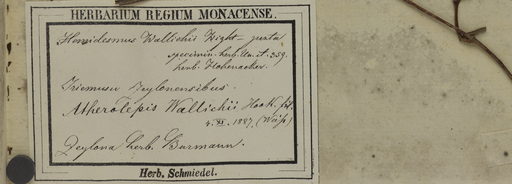 HERBARIUM REGIUM MONACENSE.
Hemidesmus Wallichii Wight – juxta
specimin. herb. Un. it. 559.
herb. Hohenacker.
Zeylonensibus.
Atherolepis Wallichii Hook. fil.
4. XI. 1887. (Warp)
Zeylona herb. Burmann.
Herb. Schmiedel.